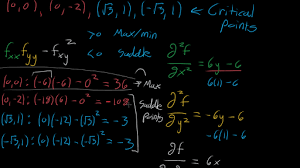 (0,0), (0,-2), (√3,1), (-√3,1) ← Critical Points
f_xx f_yy - f_xy² > 0 Max/min
< 0 Saddle
(0,0): (-6)(-6) - 0² = 36 → Max
(0,-2): (-18)(6) - 0² = -108
(√3,1): (0)(-12) - (√3)² = -3
(-√3,1): (0)(-12) - (-√3)² = -3
Saddle points
∂²f/∂x² = 6y - 6
6(1) - 6
∂²f/∂y² = -6y - 6
-6(1) - 6
∂²f = 6x